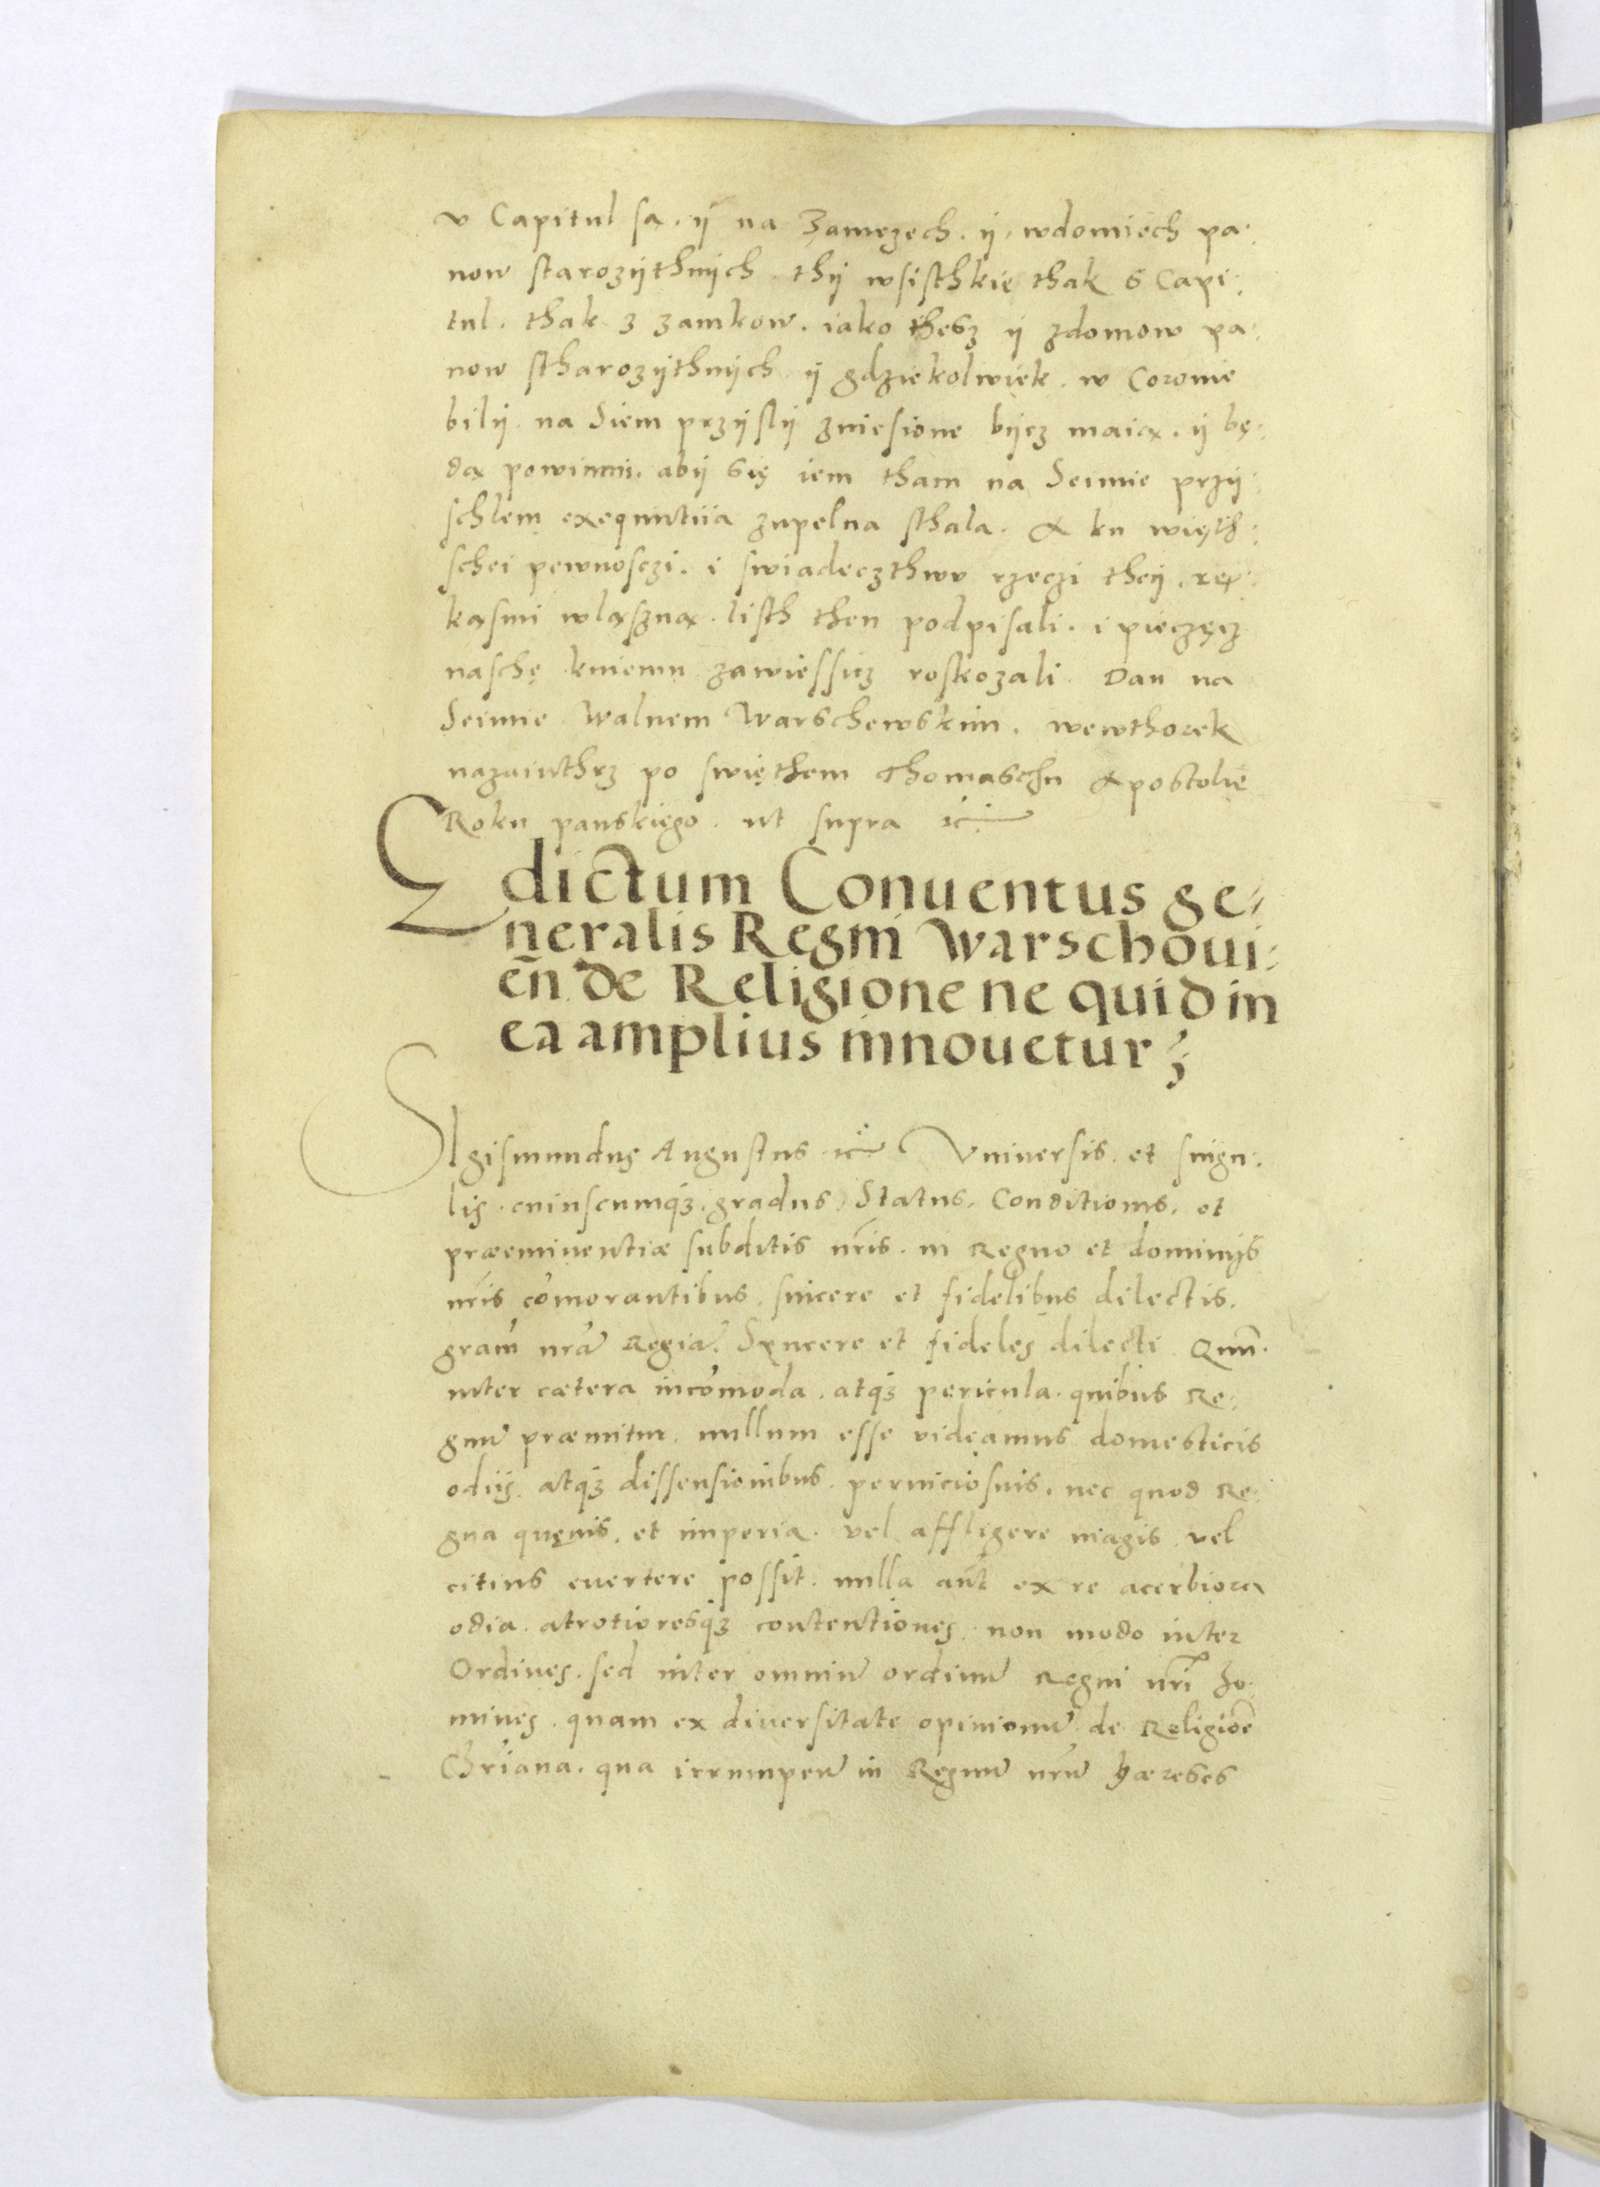 v Capitul są. ij na Zamczech. ij. wdomiech pa:
now starozijthnijch. thij wsisthkie thak s Capi:
tul. thak z zamkow. iako thesz ij zdomow pa:
now stharozijthnijch ij gdziekolwiek. w Coronie
bilij. na Siem przijslij zniesione bijcz maią. ij bę:
dą powinni. abij się iem tham na Seimie przij:
schlem exequutiia zupelna sthala. A ku więth:
schei pewnosczi. i swiadeczthwu rzeczi theij. rę:
kąsmi wlasną. listh then podpisali. i pieczęcz
naschę kniemu zawiessicz roskozali. Dan na
Seimie Walnem Warschewskim. wewthorek
nazaiuthrz po swięthem Thomaschu Apostolie
Roku panskiego. ut supra ꝛc
Edictum Conuentus ge:
neralis Regni Warschoui:
eñ. de Religione ne quid in
ea amplius innouetur
SIgismundus Augustus ꝛc Vniuersis. et singu:
lis. cuiuscumqꝫ. gradus. Status. Conditionis. et
præeminentiæ subditis nr̃is. in Regno et dominijs
nr̃is com̃orantibus. sincere et fidelibus dilectis.
gram̃ nrã Regiã. Syncere et fideles dilecti. Quũ
inter cætera incom̃oda. atqꝫ pericula. quibus Re:
gnũ præmitur. nullum esse videamus domesticis
odijs. atqꝫ dissensionibus. perniciosius. nec quod Re:
gna quęuis. et imperia. vel affligere magis. vel
citius euertere possit. nulla aũt ex re acerbiora
odia. atrotioresqꝫ contentiones. non modo inter
Ordines. sed inter omniũ ordinũ Regni nr̃i ho:
mines. quam ex diuersitate opinionũ de Religiõe
Chr̃iana. qua irrumpeñ in Regnũ nrũ hæreses